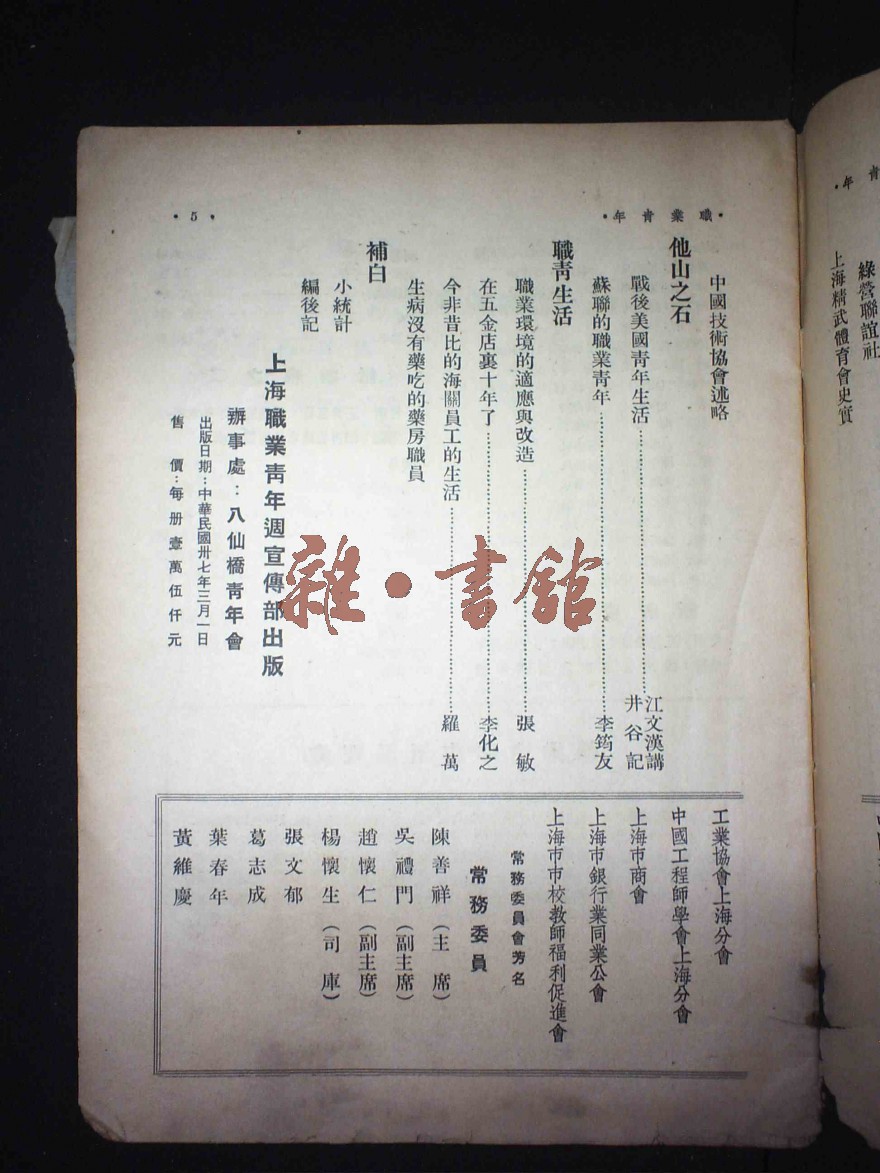 •職業青年•
• 5 •
中國技術協會述略
他山之石
戰後美國青年生活……江文漢講
井谷記
蘇聯的職業青年……李筠友
職青生活
職業環境的適應與改造……張敏
在五金店裏十年了……李化之
今非昔比的海關員工的生活……羅萬
生病沒有藥吃的藥房職員
補白
小統計
編後記
上海職業青年週宣傳部出版
辦事處：八仙橋青年會
出版日期：中華民國卅七年三月一日
售價：每册壹萬伍仟元
工業協會上海分會
中國工程師學會上海分會
上海市商會
上海市銀行業同業公會
上海市市校教師福利促進會
常務委員會芳名
常務委員
陳善祥（主席）
吳禮門（副主席）
趙懷仁（副主席）
楊懷生（司庫）
張文郁
葛志成
葉春年
黃維慶
綠營聯誼社
上海精武體育會史實
雜•書館